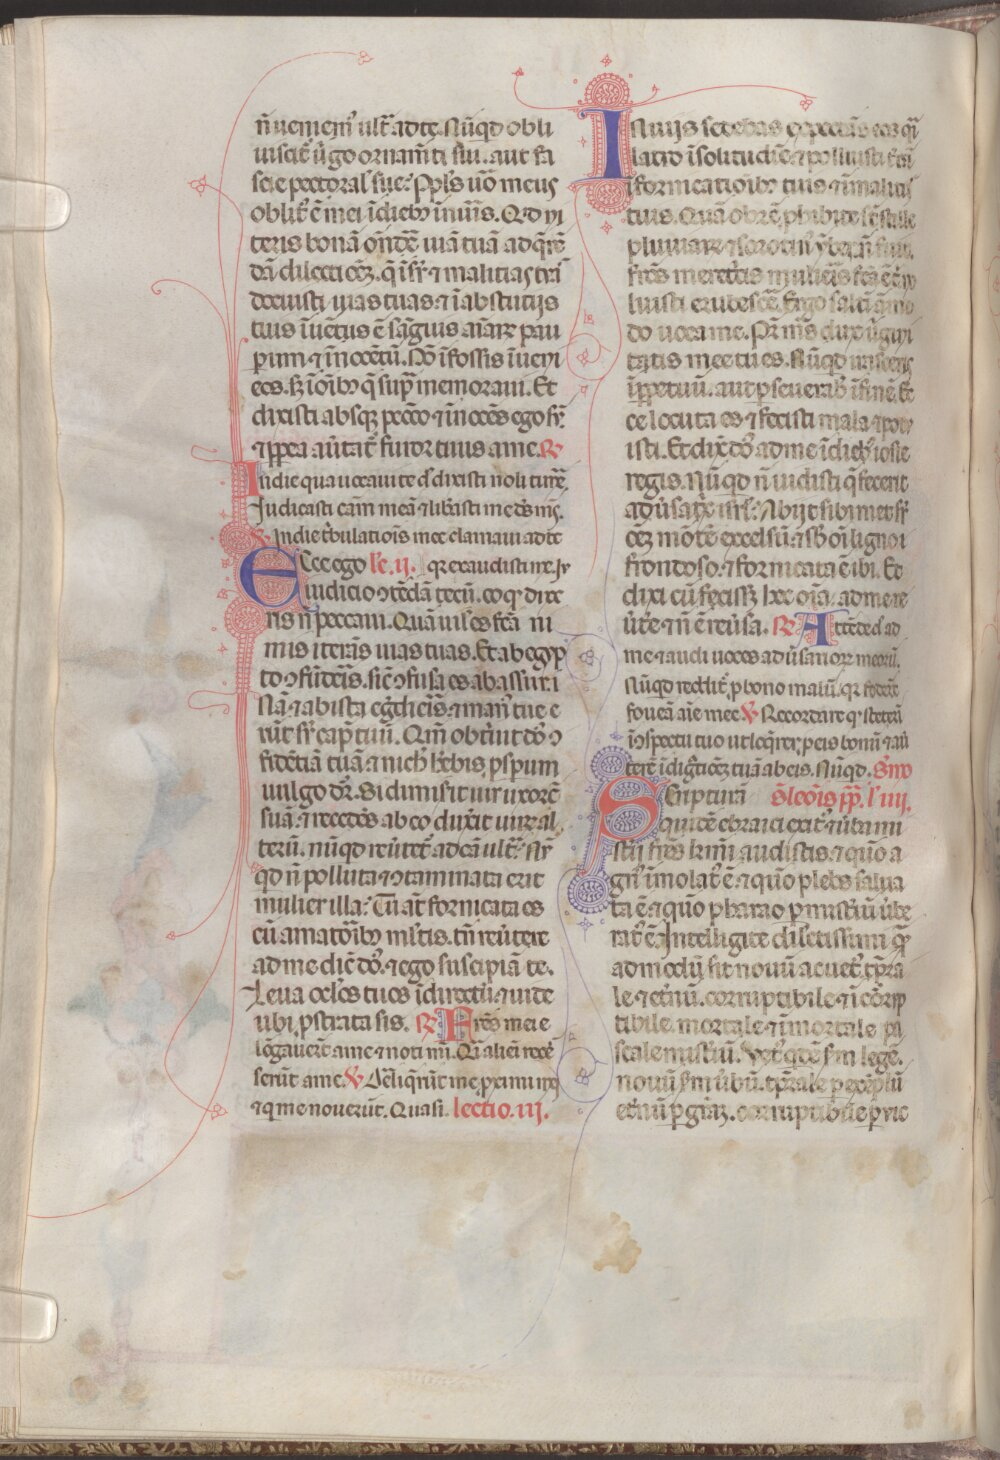 n̄ veniem᷒ ult̄ ad te. Nūq̇d obli
viscit᷒ v̄go ornam̄ti sui. aut fa
scie pectoral᷒ sue? Ppl̄s vō meus
oblit᷒ ē mei īdieb᷒ īnūīs. Qꝺ ni
teris bonā on̄dē̄ viā tuā ad q̄rē
dā dilectiōēꝫ. q̄ īsr̄ ⁊ malitias
docuisti vias tuas. ⁊ ī abscutijs
tuis īvētus ē sāguis aīarꝝ pau
perum ⁊ īnocētū. Nō ī fossis īveni
eos. sꝫ ī oīb᷒ q̄ supͣ memoravi. Et
dixisti absqꝫ pccō ⁊ īnocēs ego sū.
⁊ ꝓpea av̄tat᷒ furor tuus a me. ℟
In die qua vocavi te d̄ dixisti noli tim̄e,
Iudicasti cām meā ⁊ libāsti me dn̄s m̄s.
℣ In die tbulatiōis mee clamavi ad te
Ecce ego le. ii. qꝛ exaudisti me. In
iudicio ↄtēdā tecū. eo qꝺ dixe
ris n̄ peccavi. Quā vil᷒ es fcā ni
mis iterās vias tuas. Et ab egyp
to ↄfūdēis. sic̄ ↄfusa es ab assur. i
Nā ⁊ ab ista eg̊dieīs. ⁊ man᷒ tue e
rūt sr̄ cap̄ tuū. Qm̄ obtvit dō ↄ
fidētiā tuā ⁊ nich̄ hēbis ꝓspum
vulgo dr̄. Si dimiserit vir uxorē
suā. ⁊ recedēs ab eo duxit virū al
terū. nūqd revtet᷒ ad eā ult̄? Nū
qd n̄ polluta ⁊ ↄtaminata erit
mulier illa? Tū āt fornicata es
cū amatōib᷒ ml̄tis. tn̄ revtere
ad me dic̄ dō. ⁊ ego suscipiā te.
Leva oclōs tuos īdirectū. ⁊ vide
ubi ꝓstrata sis. ℟ Frēs mei e
lōgavert a me ⁊ noti mī. Qͣ alieī recē
serūt a me. ℣ Deliq̄rūt me ꝓximi mei
⁊ q me noverūt. Quasi. lectio. iii.
In vijs sedebas expectās eos q̄
latro ī solitudīe. ⁊ polluisti trā
ī fornicatiōib᷒ tuis ⁊ ī malitijs
tuis. Quā obrē ꝓhibite sūt stille
pluviarꝝ ⁊ serotin᷒ ȳber n̄ fuit.
frōs meretcis mulieris fcā ē t̄ no
luisti erubescē. Ergo saltē āmo
do voca me. Pr̄ m̄s dux v̄gini
tatis mee tu es. Nūqd irasceris
īꝑpetuū. aut ꝑseverab̄ ī finē. Ec
ce locuta es ⁊ fecisti mala ⁊ potu
isti. Et dix̄ dō ad me īdieb᷒ iosie
regis. Nūqd n̄ vidisti q̄ fecerit
adūsatrx isrl̄? Abijt sibimet sr̄
ōēꝫ mōtē excelsū. ⁊ sb̄ oī ligno
frondoso. ⁊ fornicata ē ibi. Et
dixi cū fecissꝫ hec oīa. ad me re
v̄te. ⁊ n̄ ē rev̄sa. ℟ Attēde d̄ ad
me ⁊ audi voces adūsariorꝝ meorū.
Nūqd reddit᷒ ꝓ bono malū. qꝛ foderē
foveā aīe mee ℣ Recordare qꝺ steterī
ī ↄspectu tuo ut loq̄rer ꝓ eis bonū ⁊ av̄
terē īdigtiōēꝫ tuā ab eis. Nūqd. Sm̄o
Scriptura Sleōīs pp. l' iiii.
quidē ebraici exit᷒ ⁊ ubi mi
stij frēs kr̄mi audistis. ⁊ quō a
gn᷒ īmolat᷒ ē. ⁊ quō plebs salva
ta ē ⁊ quō pharao ꝑ mistiū libe
rat᷒ ē. Intelligite dilctissimi q̄
admodū sit novū ac vet᷒. tp̄ra
le ⁊ etnū. corruptibile ⁊ īcōrrup
tibile. mortale ⁊ īmortale pa
scale mistiū. Vet᷒ qdē sm̄ legē.
novū sm̄ ūbū. tp̄rale ꝑ exēplū
etnū ꝑ grāꝫ. corruptibile ꝑ vic